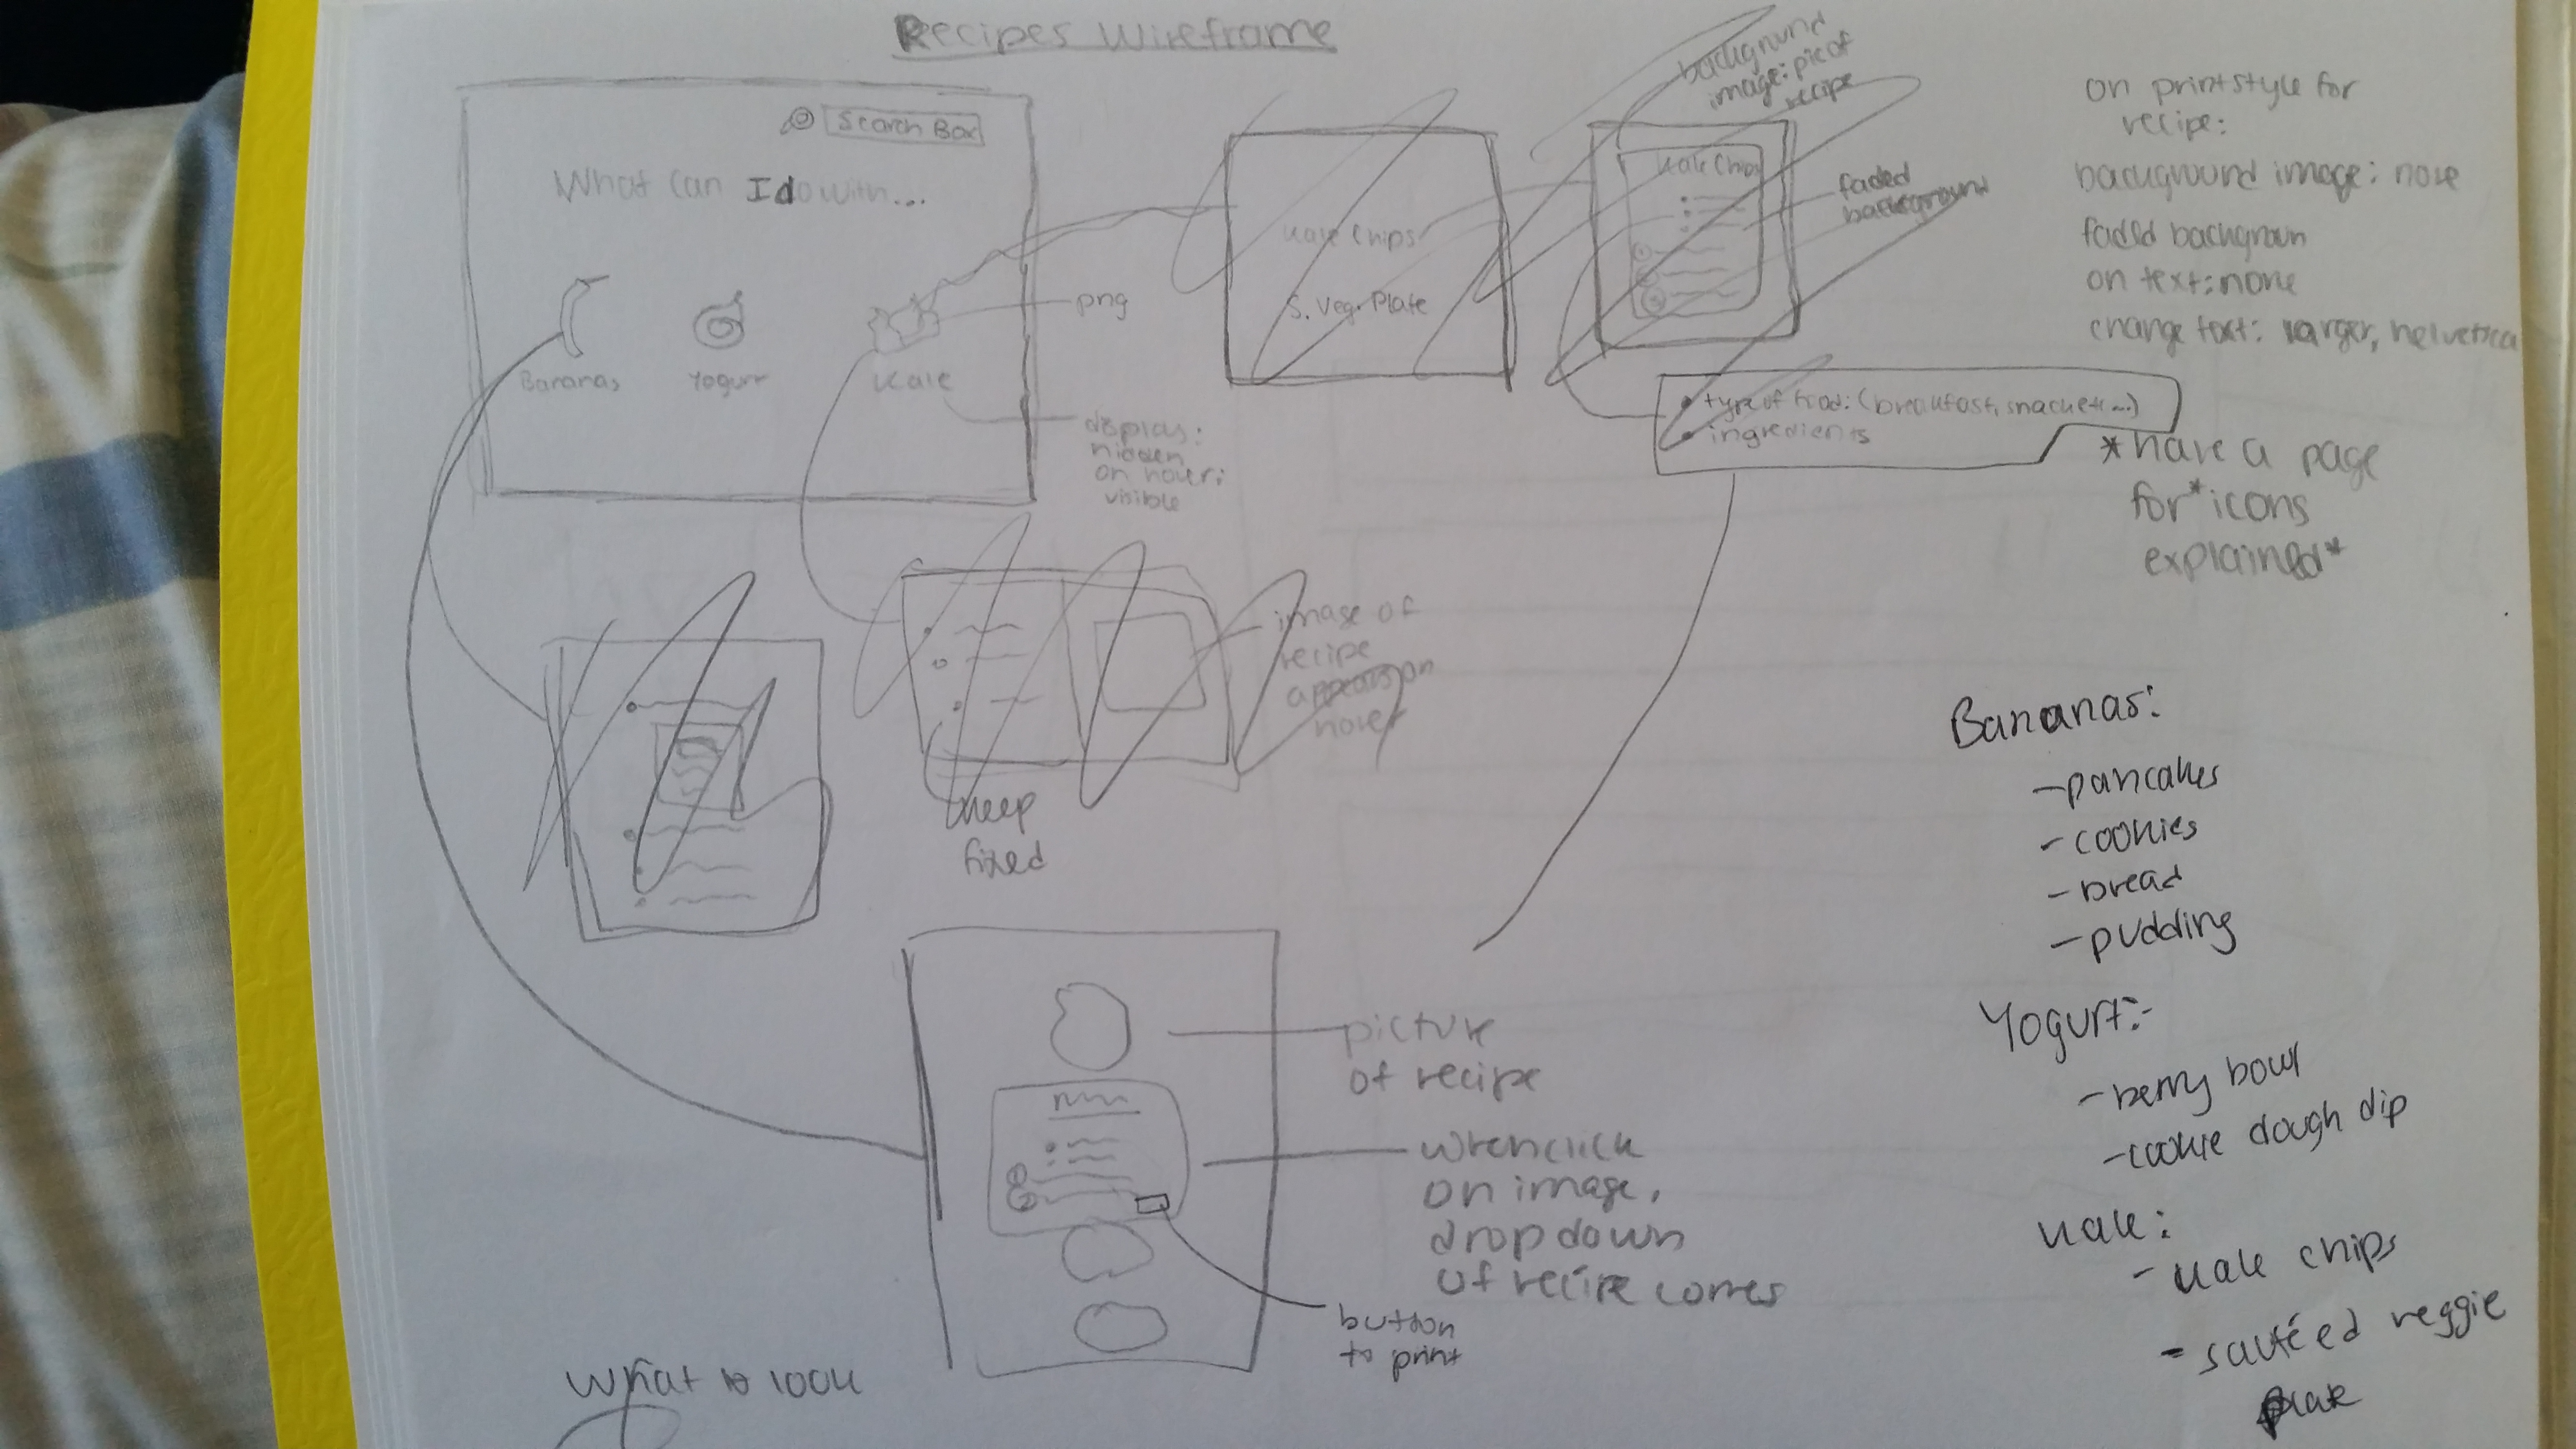 Recipes Wireframe
Search Box
What can I do with...
Bananas
Yogurt
Kale
png
display:
hidden
on hover:
visible
Kale Chips
S. Veg. Plate
background
image: pic of
recipe
Kale Chips
faded
background
on printstyle for
recipe:
background image: none
faded backgroun
on text: none
change font: larger, helvetica
• type of food: (breakfast, snack etc...)
• ingredients
*have a page
for *icons
explained*
image of
recipe
appears on
hover
keep
fixed
picture
of recipe
when click
on image,
drop down
of recipe comes
button
to print
What to look
Bananas:
- pancakes
- cookies
- bread
- pudding
Yogurt:-
- berry bowl
- cookie dough dip
Kale:
- kale chips
- sautéed veggie
plate